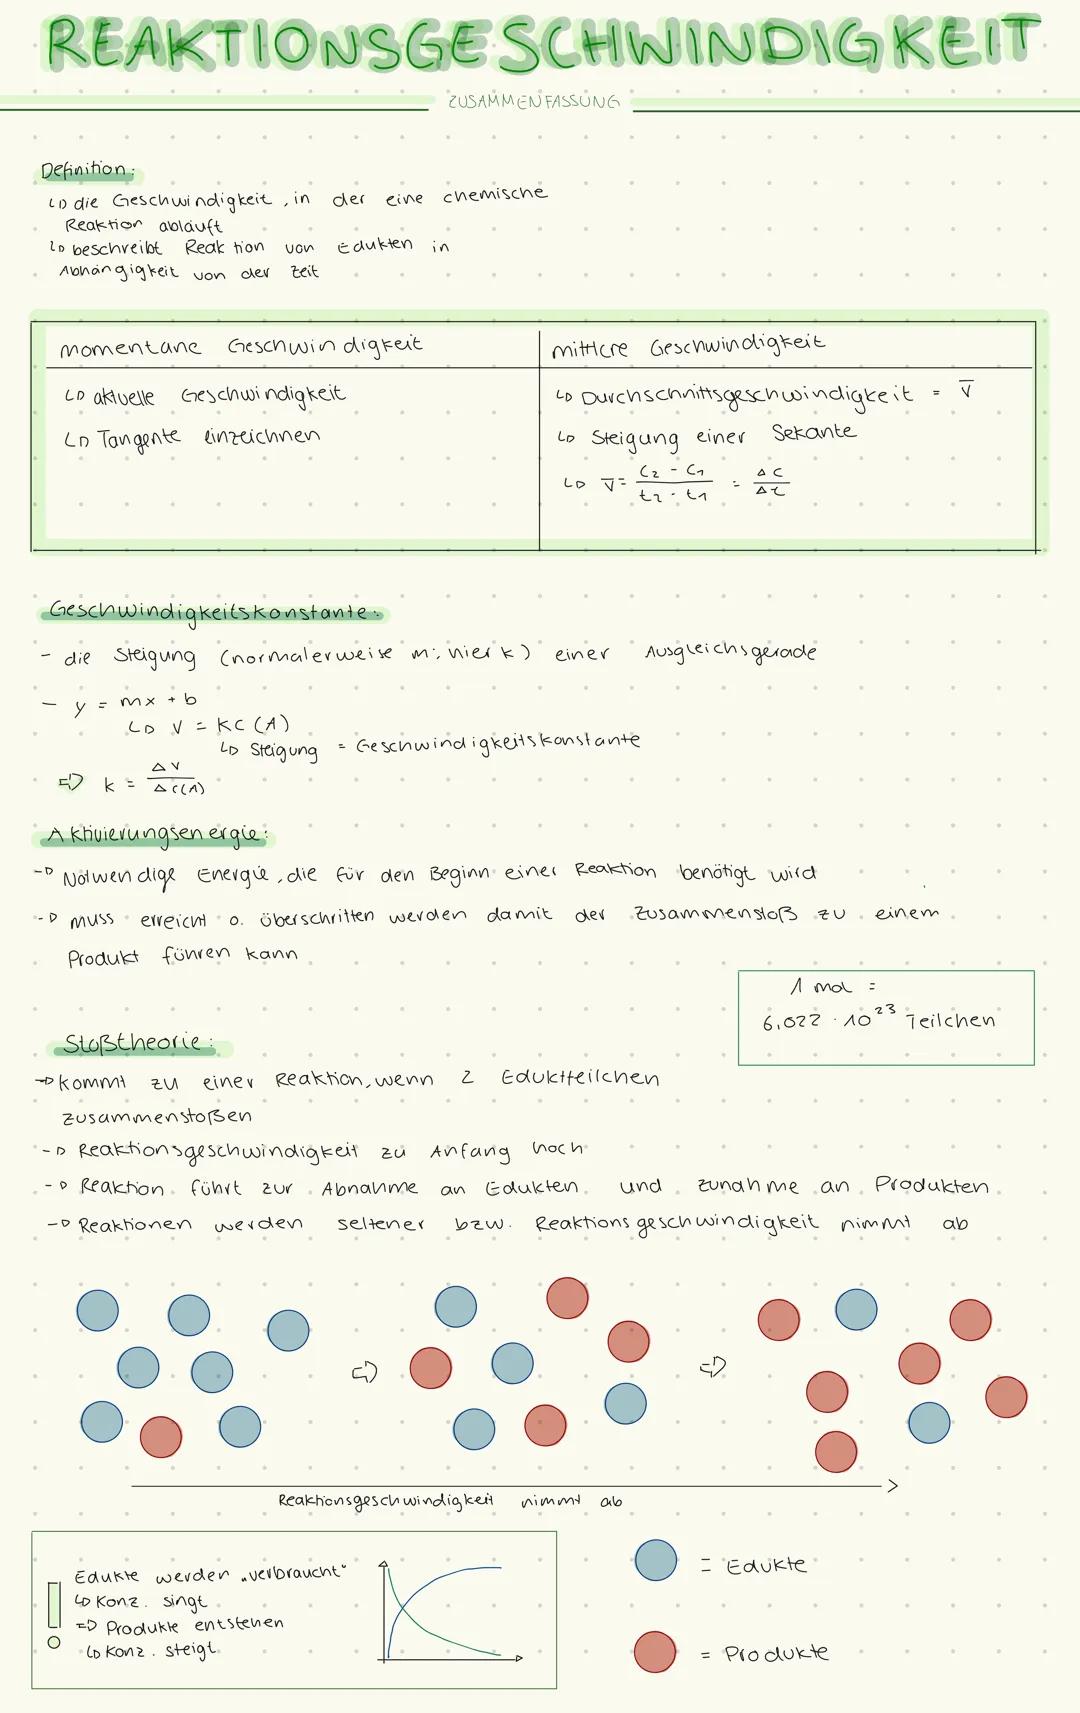 REAKTIONSGESCHWINDIGKEIT
ZUSAMMENFASSUNG
Definition:
↳ die Geschwindigkeit, in der eine chemische
Reaktion abläuft
↳ beschreibt Reaktion von Edukten in
Abhängigkeit von der Zeit
momentane Geschwindigkeit
↳ aktuelle Geschwindigkeit
↳ Tangente einzeichnen
mittlere Geschwindigkeit
↳ Durchschnittsgeschwindigkeit = v̅
↳ Steigung einer Sekante
↳ v̅ = (c₂ - c₁)/(t₂ - t₁) = Δc/Δt
Geschwindigkeitskonstante:
- die Steigung (normalerweise m; hier k) einer Ausgleichsgerade
- y = mx + b
↳ v = kc (A)
↳ Steigung = Geschwindigkeitskonstante
⇒ k = Δv/Δc(A)
Aktivierungsenergie:
→ Notwendige Energie, die für den Beginn einer Reaktion benötigt wird
→ muss erreicht o. überschritten werden damit der Zusammenstoß zu einem
Produkt führen kann
1 mol =
6,022 · 10²³ Teilchen
Stoßtheorie:
→ kommt zu einer Reaktion, wenn 2 Eduktteilchen
zusammenstoßen
→ Reaktionsgeschwindigkeit zu Anfang hoch
→ Reaktion führt zur Abnahme an Edukten und zunahme an Produkten
→ Reaktionen werden seltener bzw. Reaktionsgeschwindigkeit nimmt ab
⇒ ⇒
Reaktionsgeschwindigkeit nimmt ab
! Edukte werden „verbraucht"
↳ Konz. singt
⇒ Produkte entstehen
↳ Konz. steigt
= Edukte
= Produkte